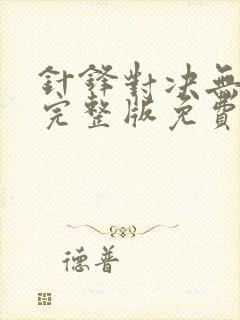 針鋒對决無
完整版免費
德普